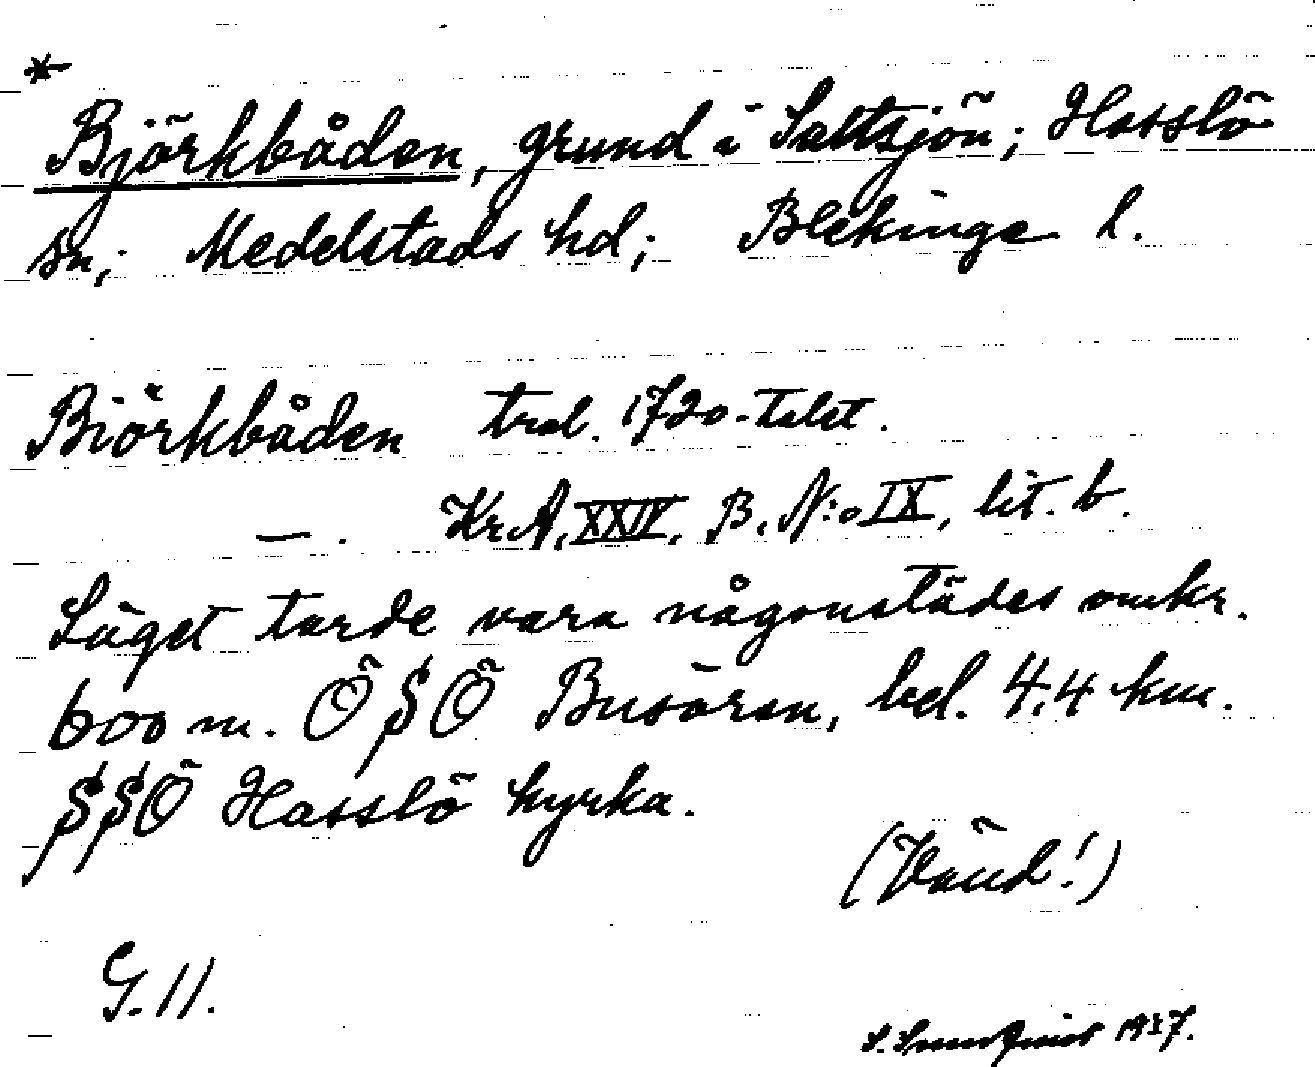 *
Björkbåden, grund i Saltsjön; Hasslö
sn; Medelstads hd; Blekinge l.
Biörkbåden trol. 1720-talet.
—. KrA, XXIV, B. N:o IX, lit. b.
Läget torde vara någonstädes omkr.
600 m. ÖSÖ Busören, bel. 4,4 km.
SSÖ Hasslö kyrka.
(Vänd!)
G. 11.
1937.